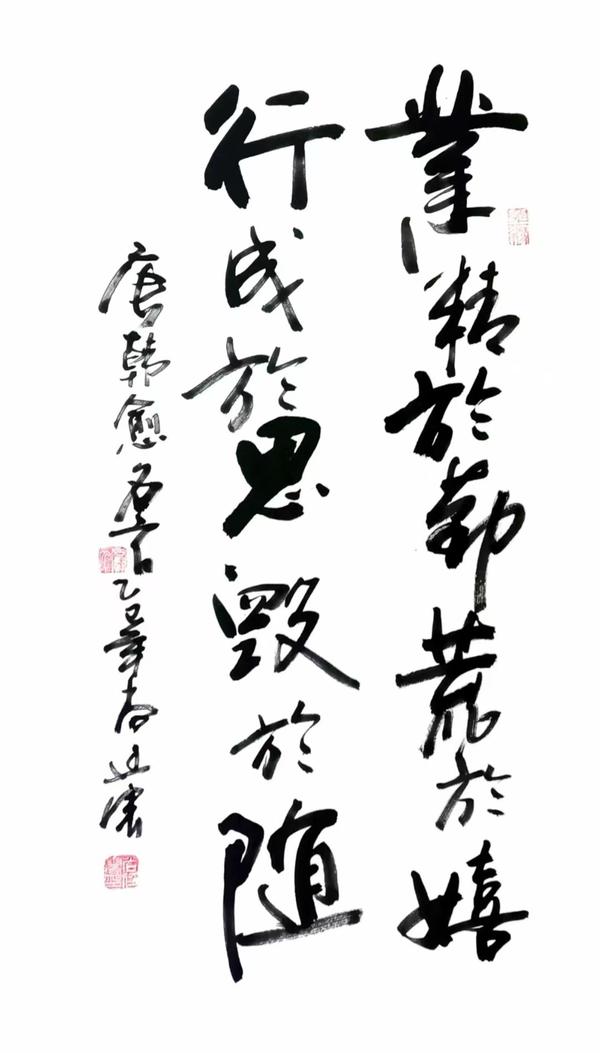 業精於勤荒於嬉
行成於思毁於随
唐韓愈名言乙巳年春